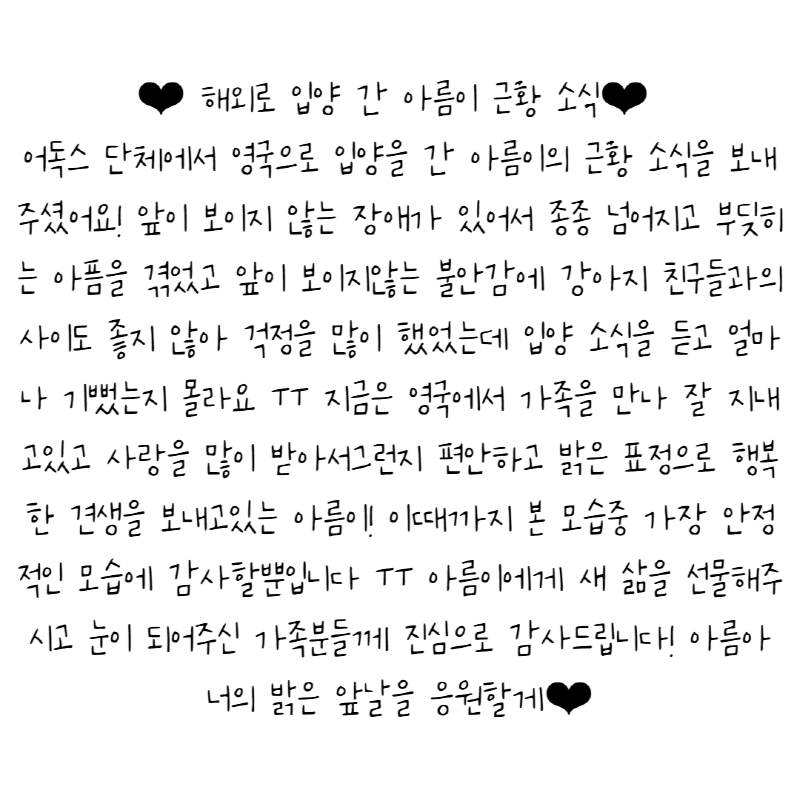 ❤ 해외로 입양 간 아름이 근황 소식❤
어독스 단체에서 영국으로 입양을 간 아름이의 근황 소식을 보내
주셨어요! 앞이 보이지 않는 장애가 있어서 종종 넘어지고 부딪히
는 아픔을 겪었고 앞이 보이지않는 불안감에 강아지 친구들과의
사이도 좋지 않아 걱정을 많이 했었는데 입양 소식을 듣고 얼마
나 기뻤는지 몰라요 ㅜㅜ 지금은 영국에서 가족을 만나 잘 지내
고있고 사랑을 많이 받아서그런지 편안하고 밝은 표정으로 행복
한 견생을 보내고있는 아름이! 이때까지 본 모습중 가장 안정
적인 모습에 감사할뿐입니다 ㅜㅜ 아름이에게 새 삶을 선물해주
시고 눈이 되어주신 가족분들께 진심으로 감사드립니다! 아름아
너의 밝은 앞날을 응원할게❤